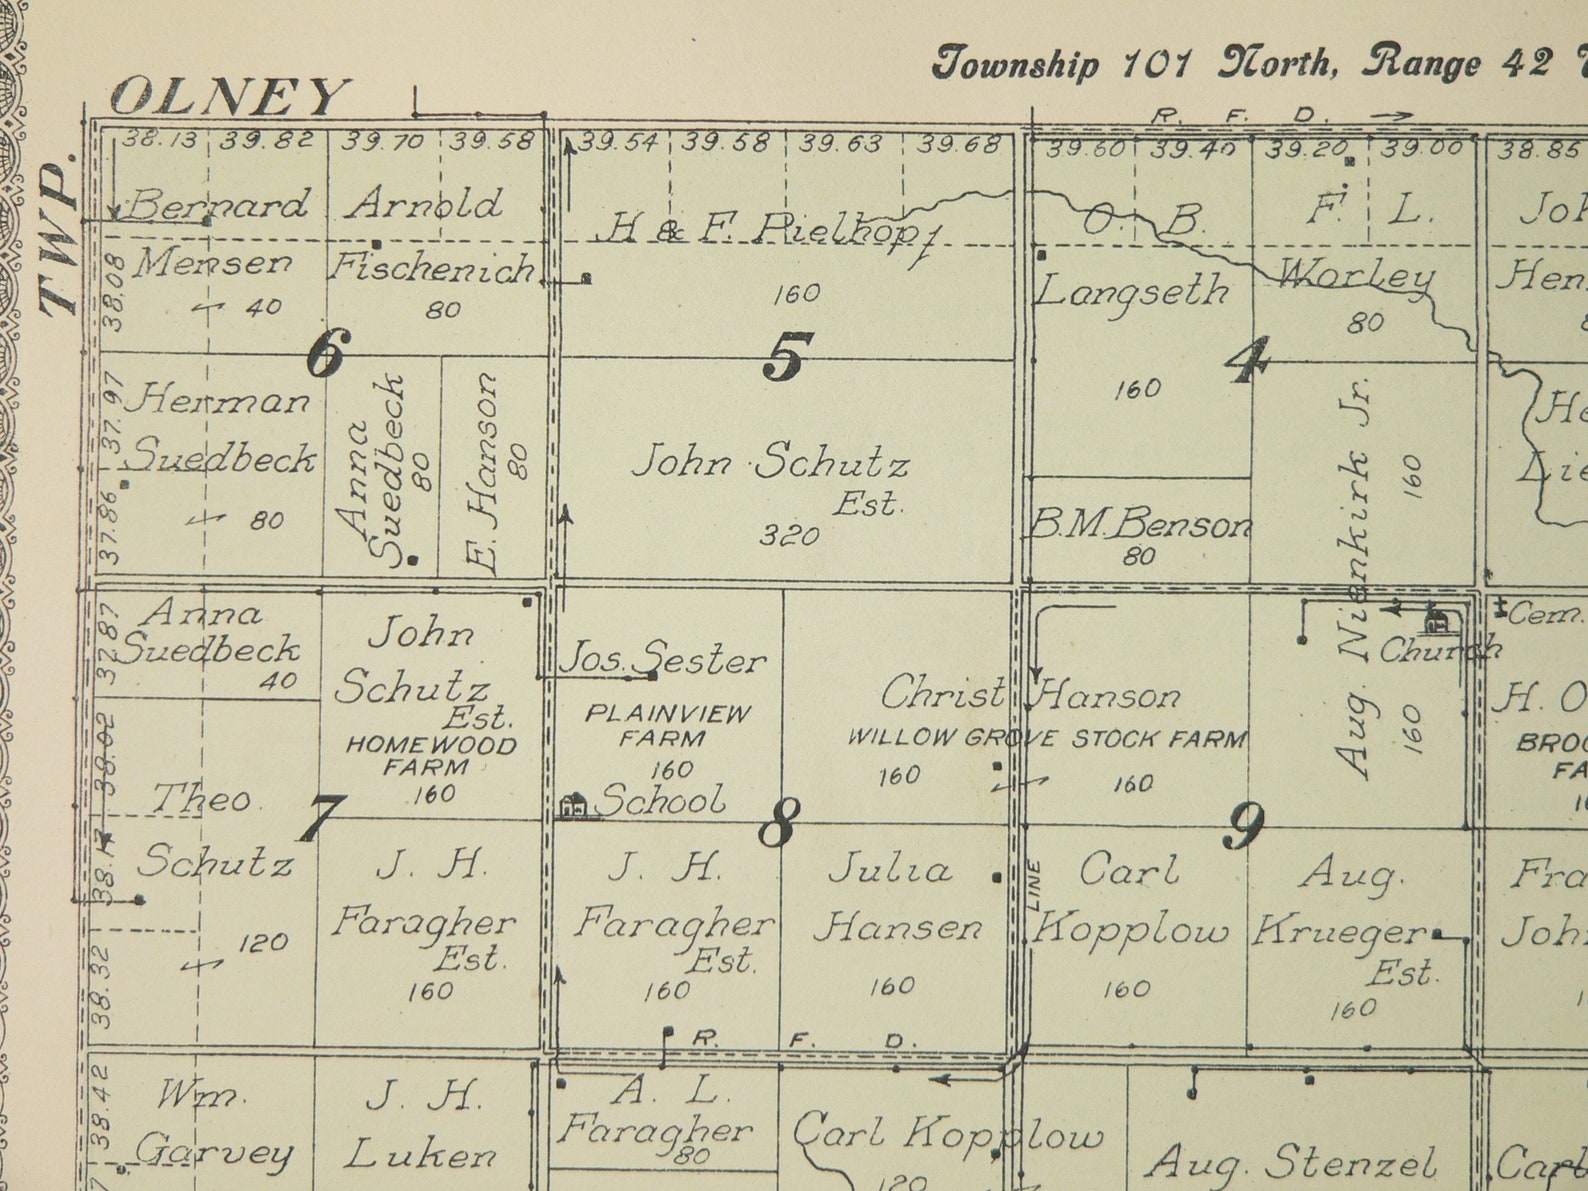 Township 101 North, Range 42
OLNEY
TWP.
R. F. D.
38.13 39.82 39.70 39.58 39.54 39.58 39.63 39.68 39.60 39.40 39.20 39.00 38.85
Bernard
Mensen
40
38.08
Arnold
Fischenich
80
H & F. Pielhop
160
O. B.
Langseth
160
F. L.
Worley
80
6
5
4
37.97
Herman
Suedbeck
80
37.86
Anna
Suedbeck
80
E. Hanson
80
John Schutz
Est.
320
B.M. Benson
80
Aug. Nienkirk Jr.
160
160
Anna
Suedbeck
40
37.87
John
Schutz
Est.
HOMEWOOD
FARM
160
Jos. Sester
PLAINVIEW
FARM
160
School
Christ Hanson
WILLOW GROVE STOCK FARM
160
160
Church
Cem.
H. O
38.02
Theo.
Schutz
120
38.17
38.32
7
8
9
J. H.
Faragher
Est.
160
J. H.
Faragher
Est.
160
Julia
Hansen
160
LINE
Carl
Kopplow
160
Aug.
Krueger
Est.
160
R. F. D.
38.42
Wm.
Garvey
J. H.
Luken
A. L.
Faragher
80
Carl Kopplow
120
Aug. Stenzel
Carl